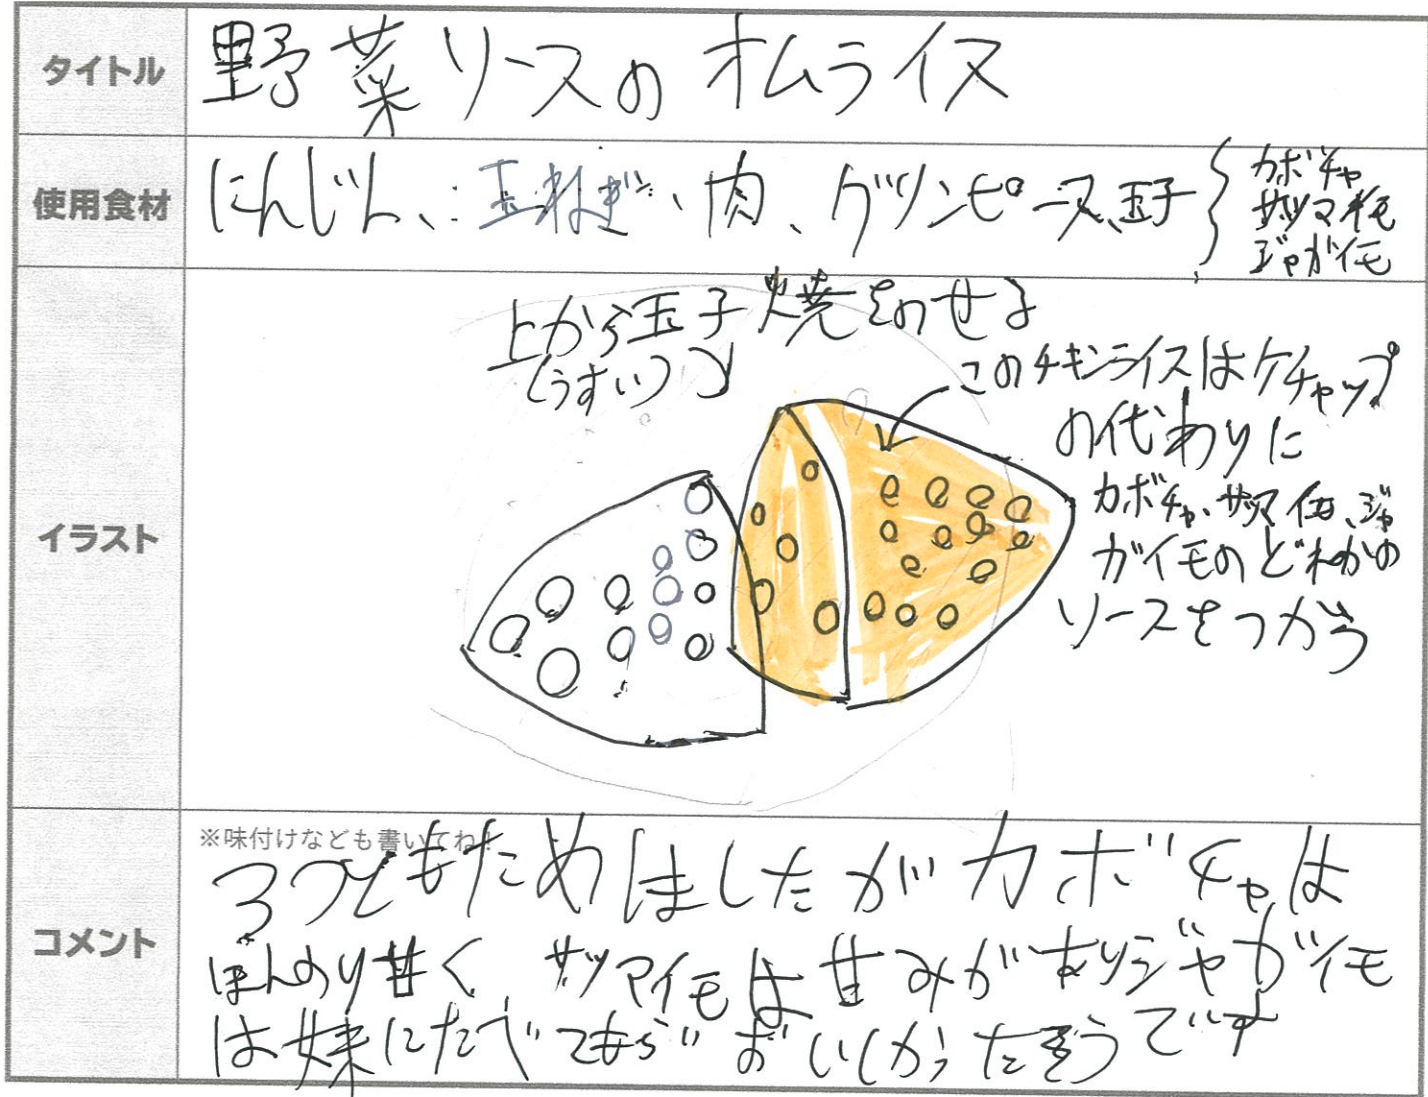 タイトル
野菜ソースのオムライス
使用食材
にんじん、玉ねぎ、肉、グリンピース、玉子
カボチャ
サツマイモ
ジャガイモ
イラスト
上から玉子焼をのせる
(うすい)
このチキンライスはケチャップ
の代わりに
カボチャ、サツマイモ、ジャ
ガイモのどれかの
ソースをつかう
コメント
※味付けなども書いてね!
3つともためしましたがカボチャは
ほんのり甘く サツマイモは甘みがありジャガイモ
は妹にたべてもらい おいしかったそうです